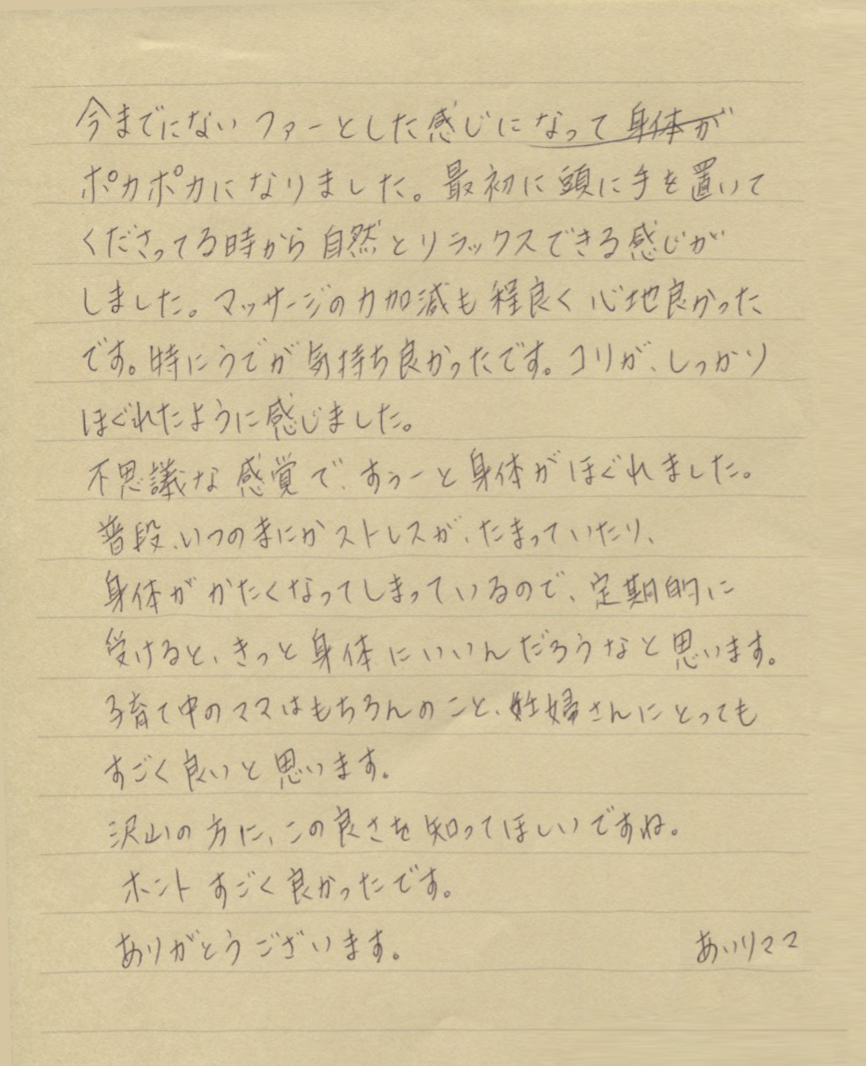 今までにない ファーとした感じになって 身体が
ポカポカになりました。最初に頭に手を置いて
くださってる時から自然とリラックスできる感じが
しました。マッサージの力加減も程良く心地良かった
です。特にうでが気持ち良かったです。コリが、しっかり
ほぐれたように感じました。
不思議な感覚で、すぅーと身体がほぐれました。
普段、いつのまにかストレスが、たまっていたり、
身体がかたくなってしまっているので、定期的に
受けると、きっと身体にいいんだろうなと思います。
子育て中のママはもちろんのこと、妊婦さんにとっても
すごく良いと思います。
沢山の方に、この良さを知ってほしいですね。
ホント すごく良かったです。
ありがとうございます。 あいりママ